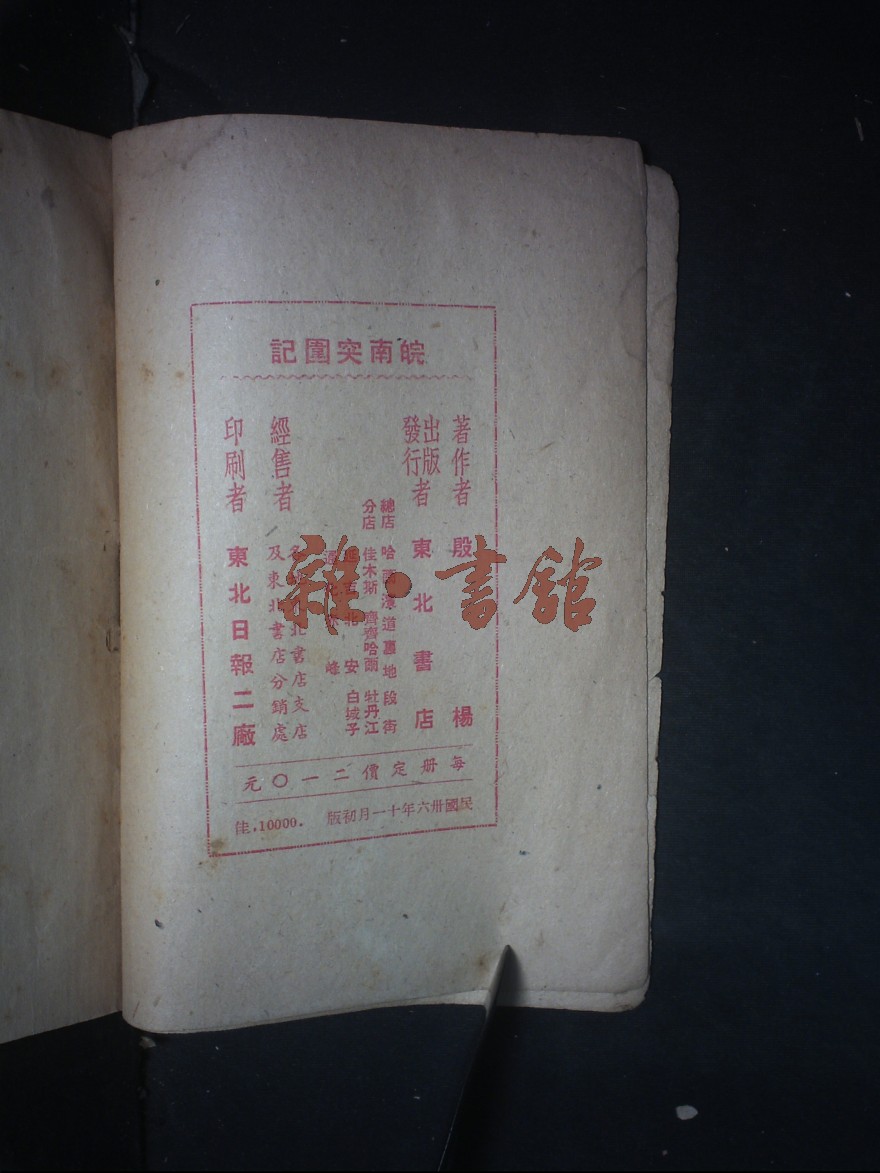 皖南突圍記
著作者 殷 楊
出版
發行者 東北書店
總店 哈爾濱道裏地段街
分店 佳木斯 齊齊哈爾 牡丹江
北安 白城子
峰
經售者
北書店支店
及東北書店分銷處
印刷者 東北日報二廠
每册定價二一〇元
民國卅六年十一月初版 佳.10000.
雜·書館